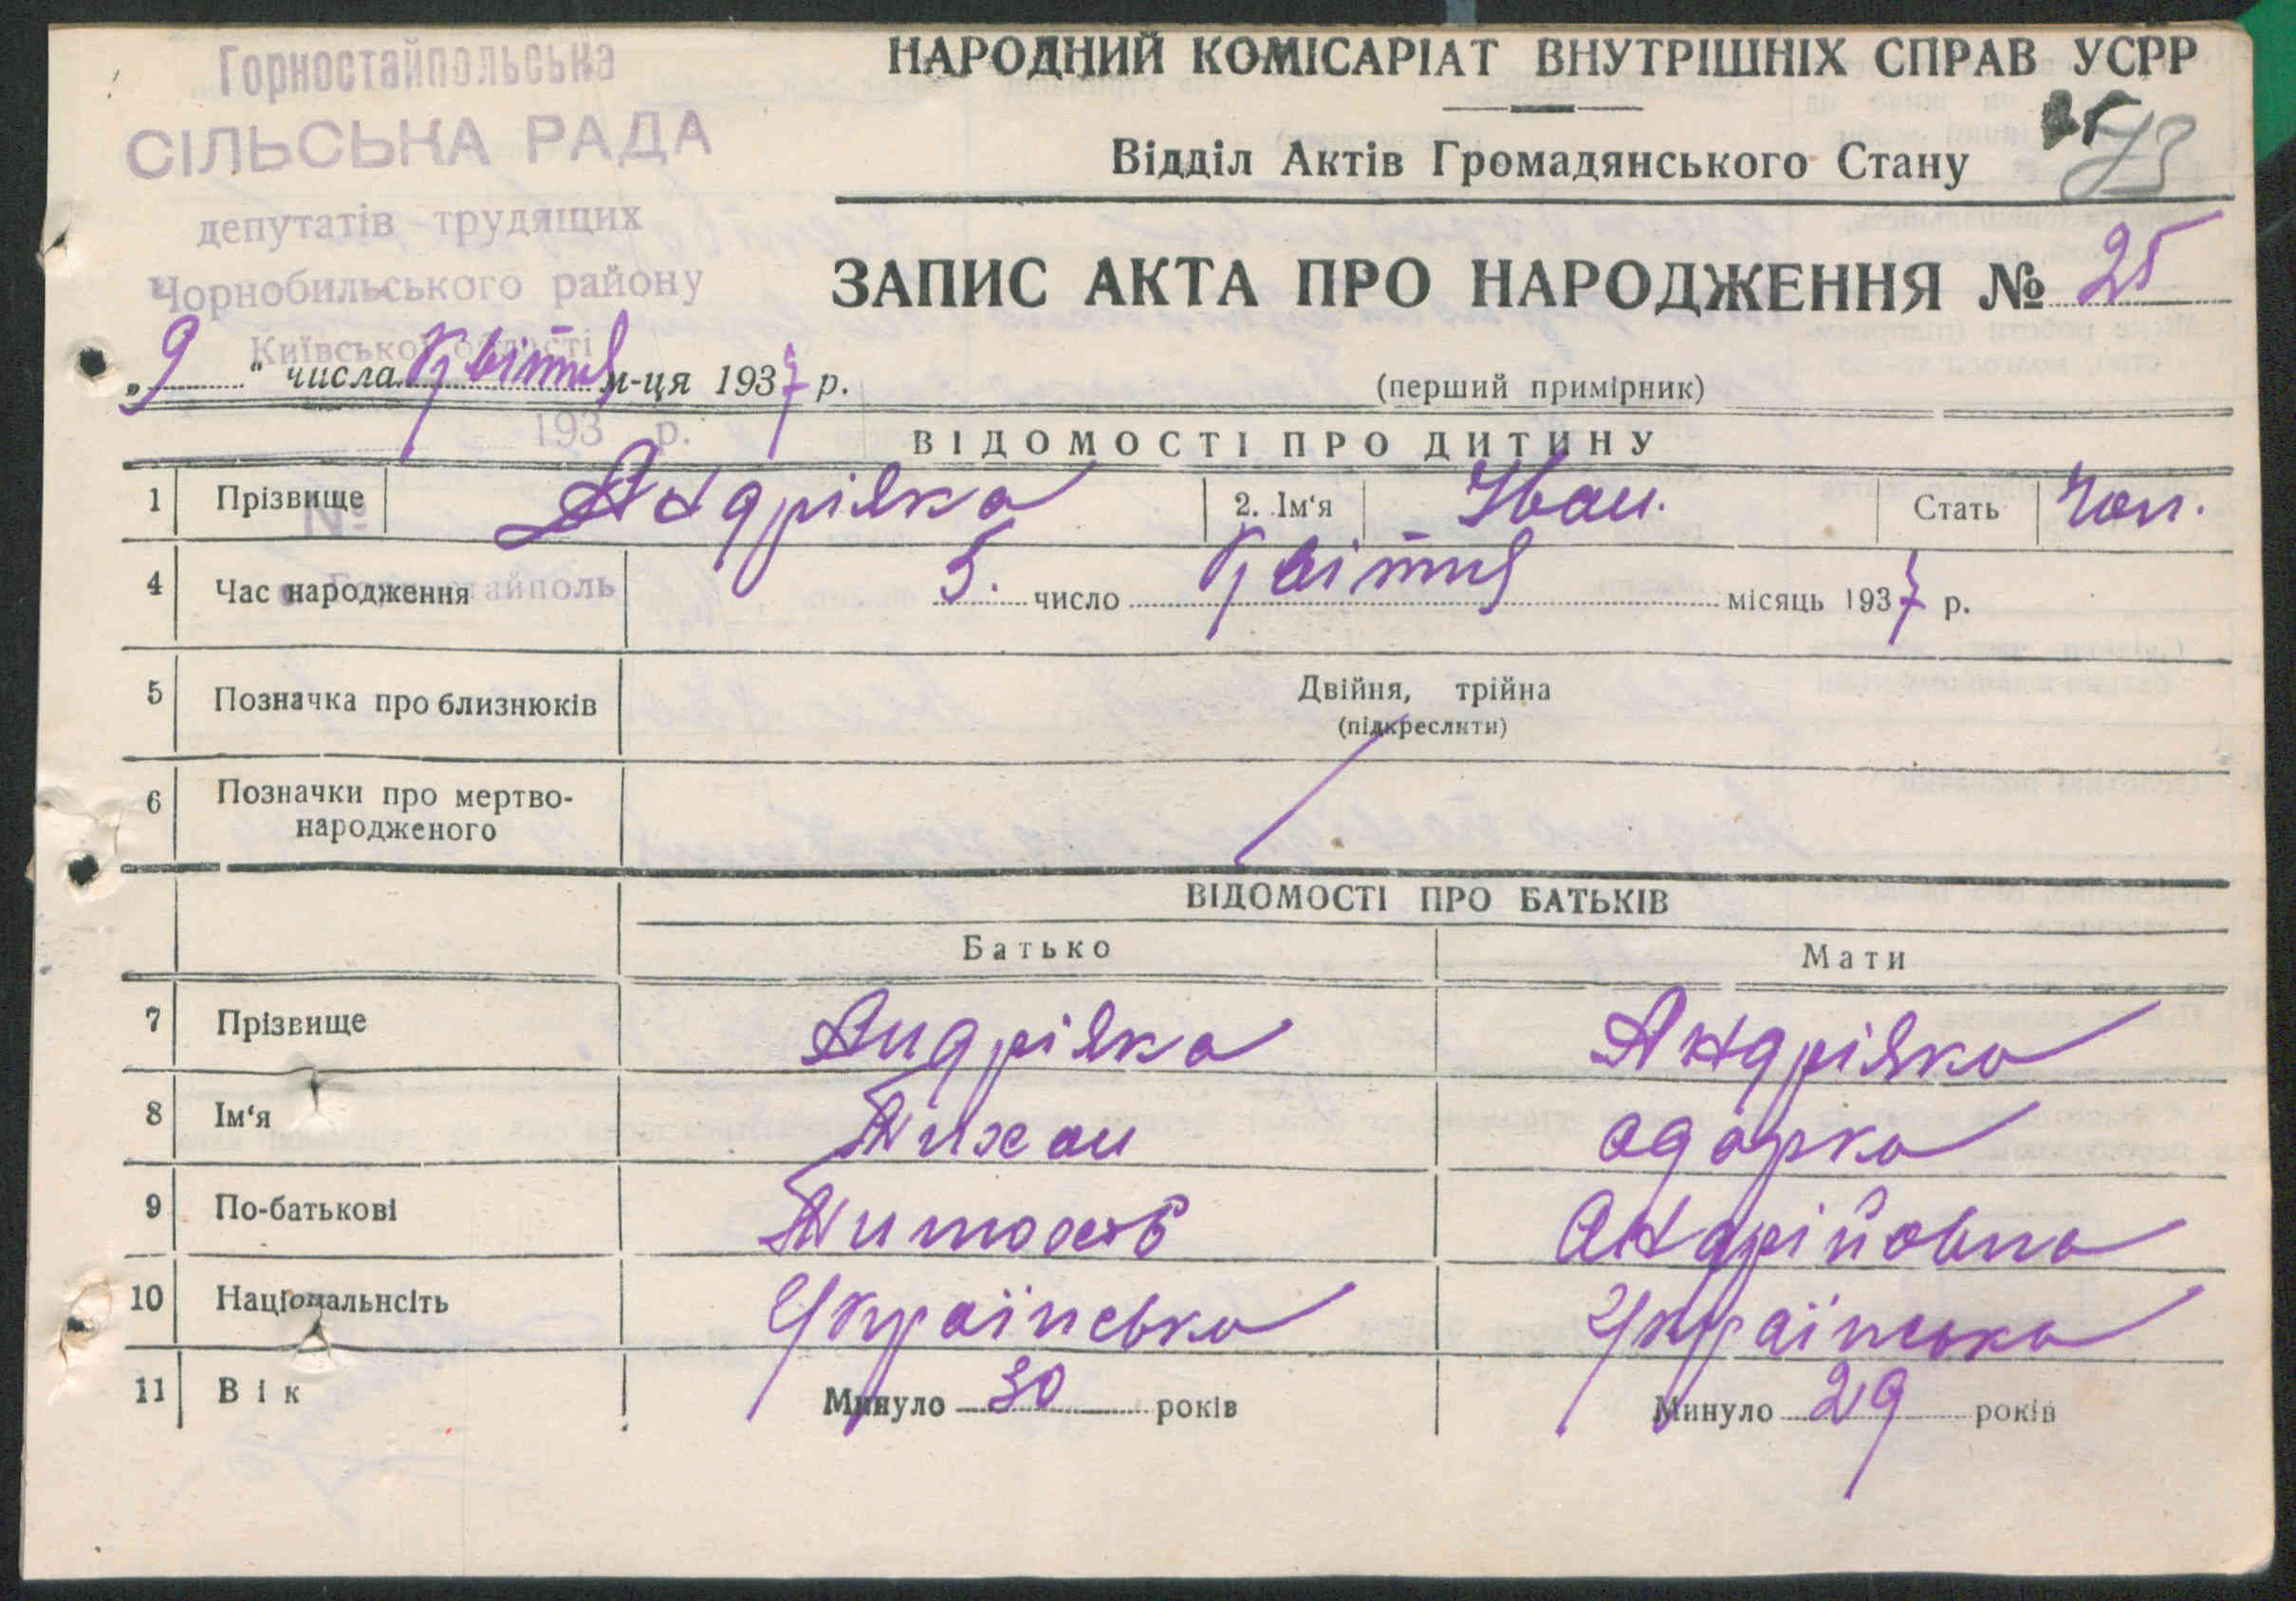 Горностайпольська
СІЛЬСЬКА РАДА
депутатів трудящих
Чорнобильського району
Київської області
193 р.
№
Горностайполь
НАРОДНИЙ КОМІСАРІАТ ВНУТРІШНІХ СПРАВ УСРР
Відділ Актів Громадянського Стану
73
ЗАПИС АКТА ПРО НАРОДЖЕННЯ № 25
„9“ числа Квітня м-ця 1937 р.
(перший примірник)
ВІДОМОСТІ ПРО ДИТИНУ
1 Прізвище Андріяка 2. Ім‘я Іван. Стать Чол.
4 Час народження 5. число Квітня місяць 1937 р.
5 Позначка про близнюків Двійня, трійна
(підкреслити)
6 Позначки про мертво-
народженого
ВІДОМОСТІ ПРО БАТЬКІВ
Батько Мати
7 Прізвище Андріяка Андріяка
8 Ім‘я Тихон Одарка
9 По-батькові Андрійовна
10 Національнсіть Українська Українська
11 Вік Минуло 30 років Минуло 29 років